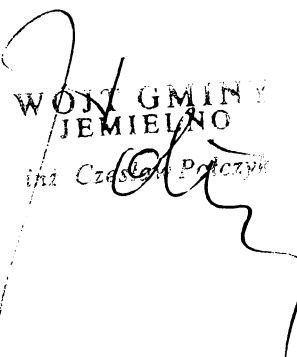 WÓJT GMINY
JEMIELNO
inż. Czesław Połczyk